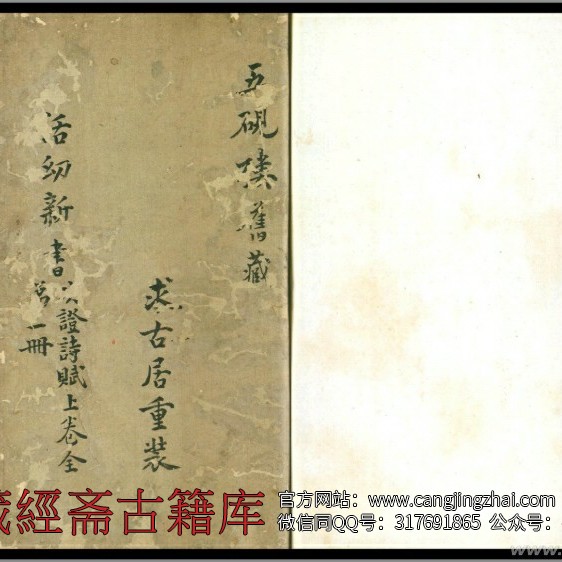 五硯樓舊藏
求古居重裝
活幼新書
决證詩賦上卷全
一冊
藏經斋古籍库
官方网站：www.cangjingzhai.com
微信同QQ号：317691865 公众号：
www.